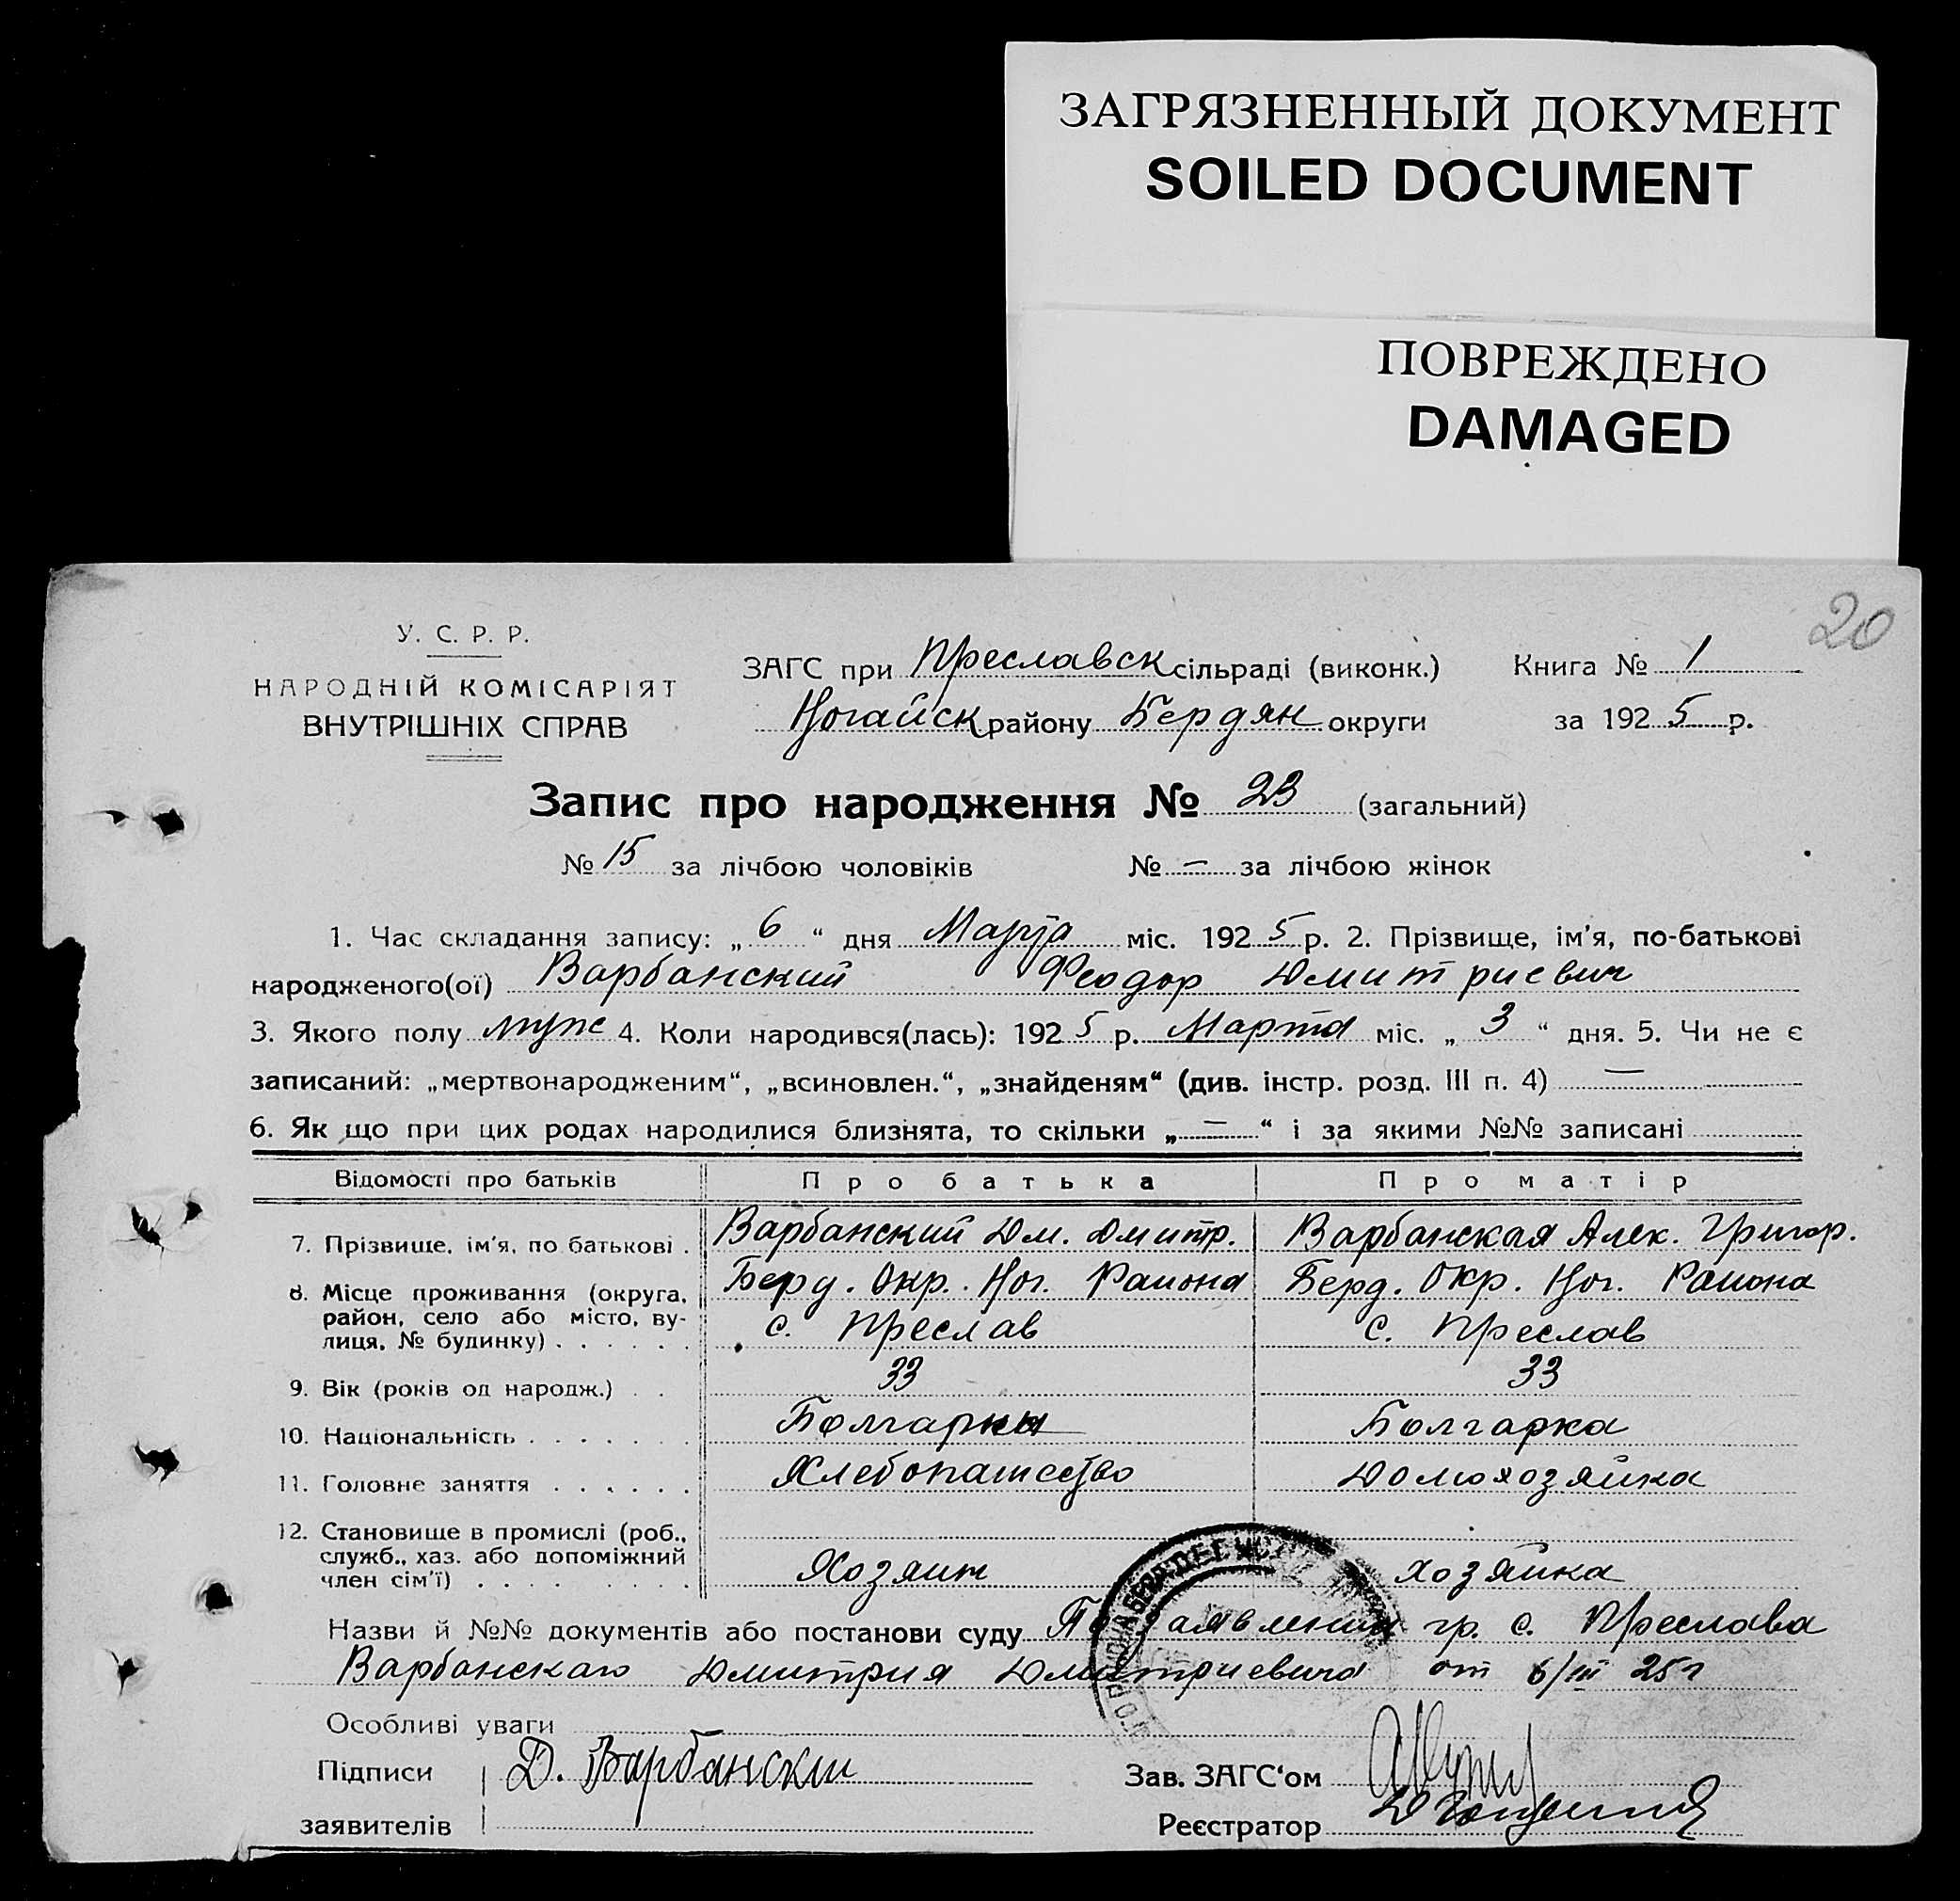 ЗАГРЯЗНЕННЫЙ ДОКУМЕНТ
SOILED DOCUMENT
ПОВРЕЖДЕНО
DAMAGED
20
У. С. Р. Р.
НАРОДНІЙ КОМІСАРІЯТ
ВНУТРІШНІХ СПРАВ
ЗАГС при Преславск сільраді (виконк.) Книга № 1
Ногайск району Бердян округи за 1925 р.
Запис про народження № 23 (загальний)
№ 15 за лічбою чоловіків № — за лічбою жінок
1. Час складання запису: „6“ дня Марта міс. 1925 р. 2. Прізвище, ім'я, по-батькові
народженого(ої) Варбанский Феодор Дмитриевич
3. Якого полу муж 4. Коли народився(лась): 1925 р. Марта міс. „3“ дня. 5. Чи не є
записаний: „мертвонародженим“, „всиновлен.“, „знайденям“ (див. інстр. розд. III п. 4) —
6. Як що при цих родах народилися близнята, то скільки „—“ і за якими №№ записані
Відомості про батьків Про батька Про матір
7. Прізвище, ім'я, по батькові . Варбанский Дм. Дмитр. Варбанская Алек. Григор.
8. Місце проживання (округа, Берд. Окр. Ног. Района Берд. Окр. Ног. Района
район, село або місто, ву-
лиця, № будинку) . . . . . . с. Преслав с. Преслав
9. Вік (років од народж.) . . 33 33
10. Національність . . . . . . . Болгарин Болгарка
11. Головне заняття . . . . . . Хлебопашество Домохозяйка
12. Становище в промислі (роб.,
служб., хаз. або допоміжний
член сім'ї) . . . . . . . . . Хозяин хозяйка
Назви й №№ документів або постанови суду По заявлению гр. с. Преслава
Варбанскаго Дмитрия Дмитриевича от 6/III 25 г
Особливі уваги
Підписи Д. Варбански Зав. ЗАГС'ом
заявителів Реєстратор